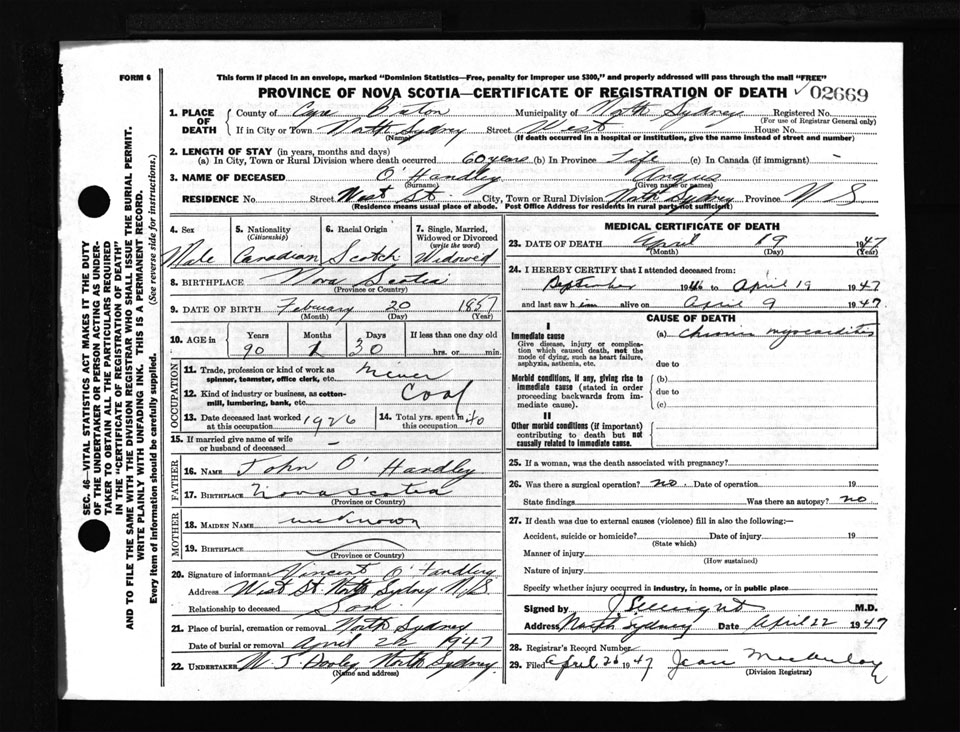 FORM 6
This form if placed in an envelope, marked "Dominion Statistics—Free, penalty for improper use $300," and properly addressed will pass through the mail "FREE"
PROVINCE OF NOVA SCOTIA—CERTIFICATE OF REGISTRATION OF DEATH
02669
1. PLACE OF DEATH
County of Cape Breton Municipality of North Sydney Registered No.
(For use of Registrar General only)
If in City or Town North Sydney Street West House No.
(Name) (If death occurred in a hospital or institution, give the name instead of street and number)
2. LENGTH OF STAY (in years, months and days)
(a) In City, Town or Rural Division where death occurred 60 years (b) In Province Life (c) In Canada (if immigrant) -
3. NAME OF DECEASED O'Handley Angus
(Surname) (Given name or names)
RESIDENCE No. Street West St City, Town or Rural Division North Sydney Province N S
(Residence means usual place of abode. Post Office Address for residents in rural parts not sufficient)
4. Sex Male
5. Nationality (Citizenship) Canadian
6. Racial Origin Scotch
7. Single, Married, Widowed or Divorced (write the word) Widowed
8. BIRTHPLACE Nova Scotia
(Province or Country)
9. DATE OF BIRTH February 20 1857
(Month) (Day) (Year)
10. AGE in Years Months Days If less than one day old
90 1 30 hrs. or min.
OCCUPATION
11. Trade, profession or kind of work as spinner, teamster, office clerk, etc. Miner
12. Kind of industry or business, as cotton-mill, lumbering, bank, etc. Coal
13. Date deceased last worked at this occupation 1926
14. Total yrs. spent in this occupation 40
15. If married give name of wife or husband of deceased -
FATHER
16. NAME John O'Handley
17. BIRTHPLACE Nova Scotia
(Province or Country)
MOTHER
18. MAIDEN NAME unknown
19. BIRTHPLACE
(Province or Country)
20. Signature of informant Vincent O'Handley
Address West St. North Sydney N.S.
Relationship to deceased Son
21. Place of burial, cremation or removal North Sydney
Date of burial or removal April 22 1947
22. UNDERTAKER W J Dooley North Sydney
(Name and address)
MEDICAL CERTIFICATE OF DEATH
23. DATE OF DEATH April 19 1947
(Month) (Day) (Year)
24. I HEREBY CERTIFY that I attended deceased from:
September 1946 to April 19 1947
and last saw him alive on April 9 1947
CAUSE OF DEATH
I
Immediate cause
Give disease, injury or complication which caused death, not the mode of dying, such as heart failure, asphyxia, asthenia, etc.
(a) Chronic myocarditis
due to
Morbid conditions, if any, giving rise to immediate cause (stated in order proceeding backwards from immediate cause).
(b)
due to
(c)
II
Other morbid conditions (if important) contributing to death but not causally related to immediate cause.
25. If a woman, was the death associated with pregnancy?
26. Was there a surgical operation? no Date of operation 19
State findings Was there an autopsy? no
27. If death was due to external causes (violence) fill in also the following:—
Accident, suicide or homicide? Date of injury 19
(State which)
Manner of injury
(How sustained)
Nature of injury
Specify whether injury occurred in industry, in home, or in public place
Signed by M.D.
Address North Sydney Date April 22 1947
28. Registrar's Record Number
29. Filed April 1947 Jean
(Division Registrar)
SEC. 46—VITAL STATISTICS ACT MAKES IT THE DUTY
OF THE UNDERTAKER OR PERSON ACTING AS UNDERTAKER TO OBTAIN ALL THE PARTICULARS REQUIRED
IN THE "CERTIFICATE OF REGISTRATION OF DEATH"
AND TO FILE THE SAME WITH THE DIVISION REGISTRAR WHO SHALL ISSUE THE BURIAL PERMIT.
WRITE PLAINLY WITH UNFADING INK. THIS IS A PERMANENT RECORD.
Every item of information should be carefully supplied. (See reverse side for instructions.)